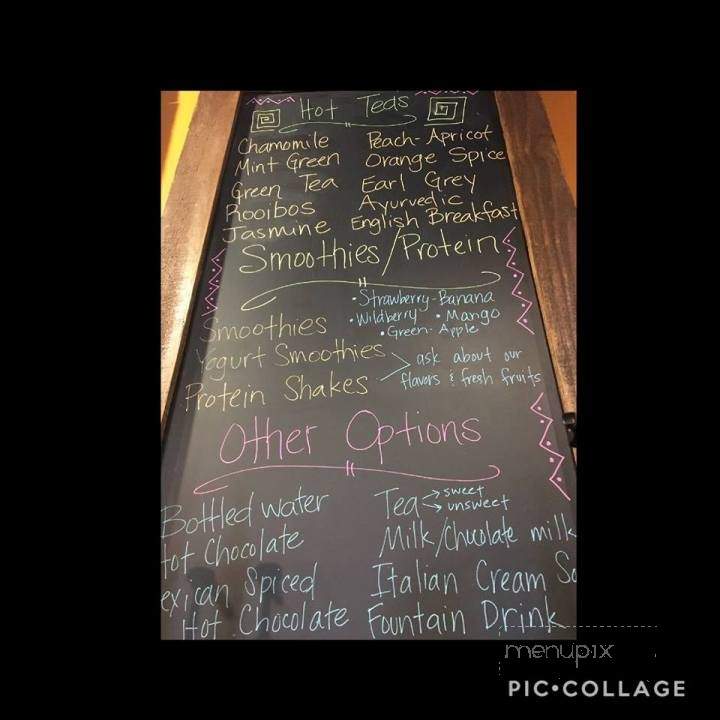 Hot Teas
Chamomile Peach-Apricot
Mint Green Orange Spice
Green Tea Earl Grey
Rooibos Ayurvedic
Jasmine English Breakfast
Smoothies/Protein
• Strawberry-Banana
Smoothies • Wildberry • Mango
• Green-Apple
Yogurt Smoothies ask about our
Protein Shakes flavors & fresh fruits
Other Options
Bottled water Tea → sweet
→ unsweet
Hot Chocolate Milk/Chocolate milk
exican Spiced Italian Cream So
Hot Chocolate Fountain Drink
menupix
PIC•COLLAGE